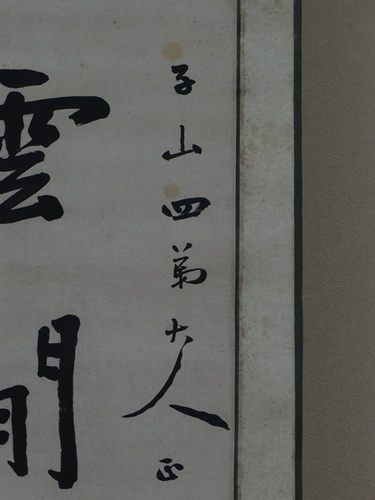 子山四弟大人正
雲間